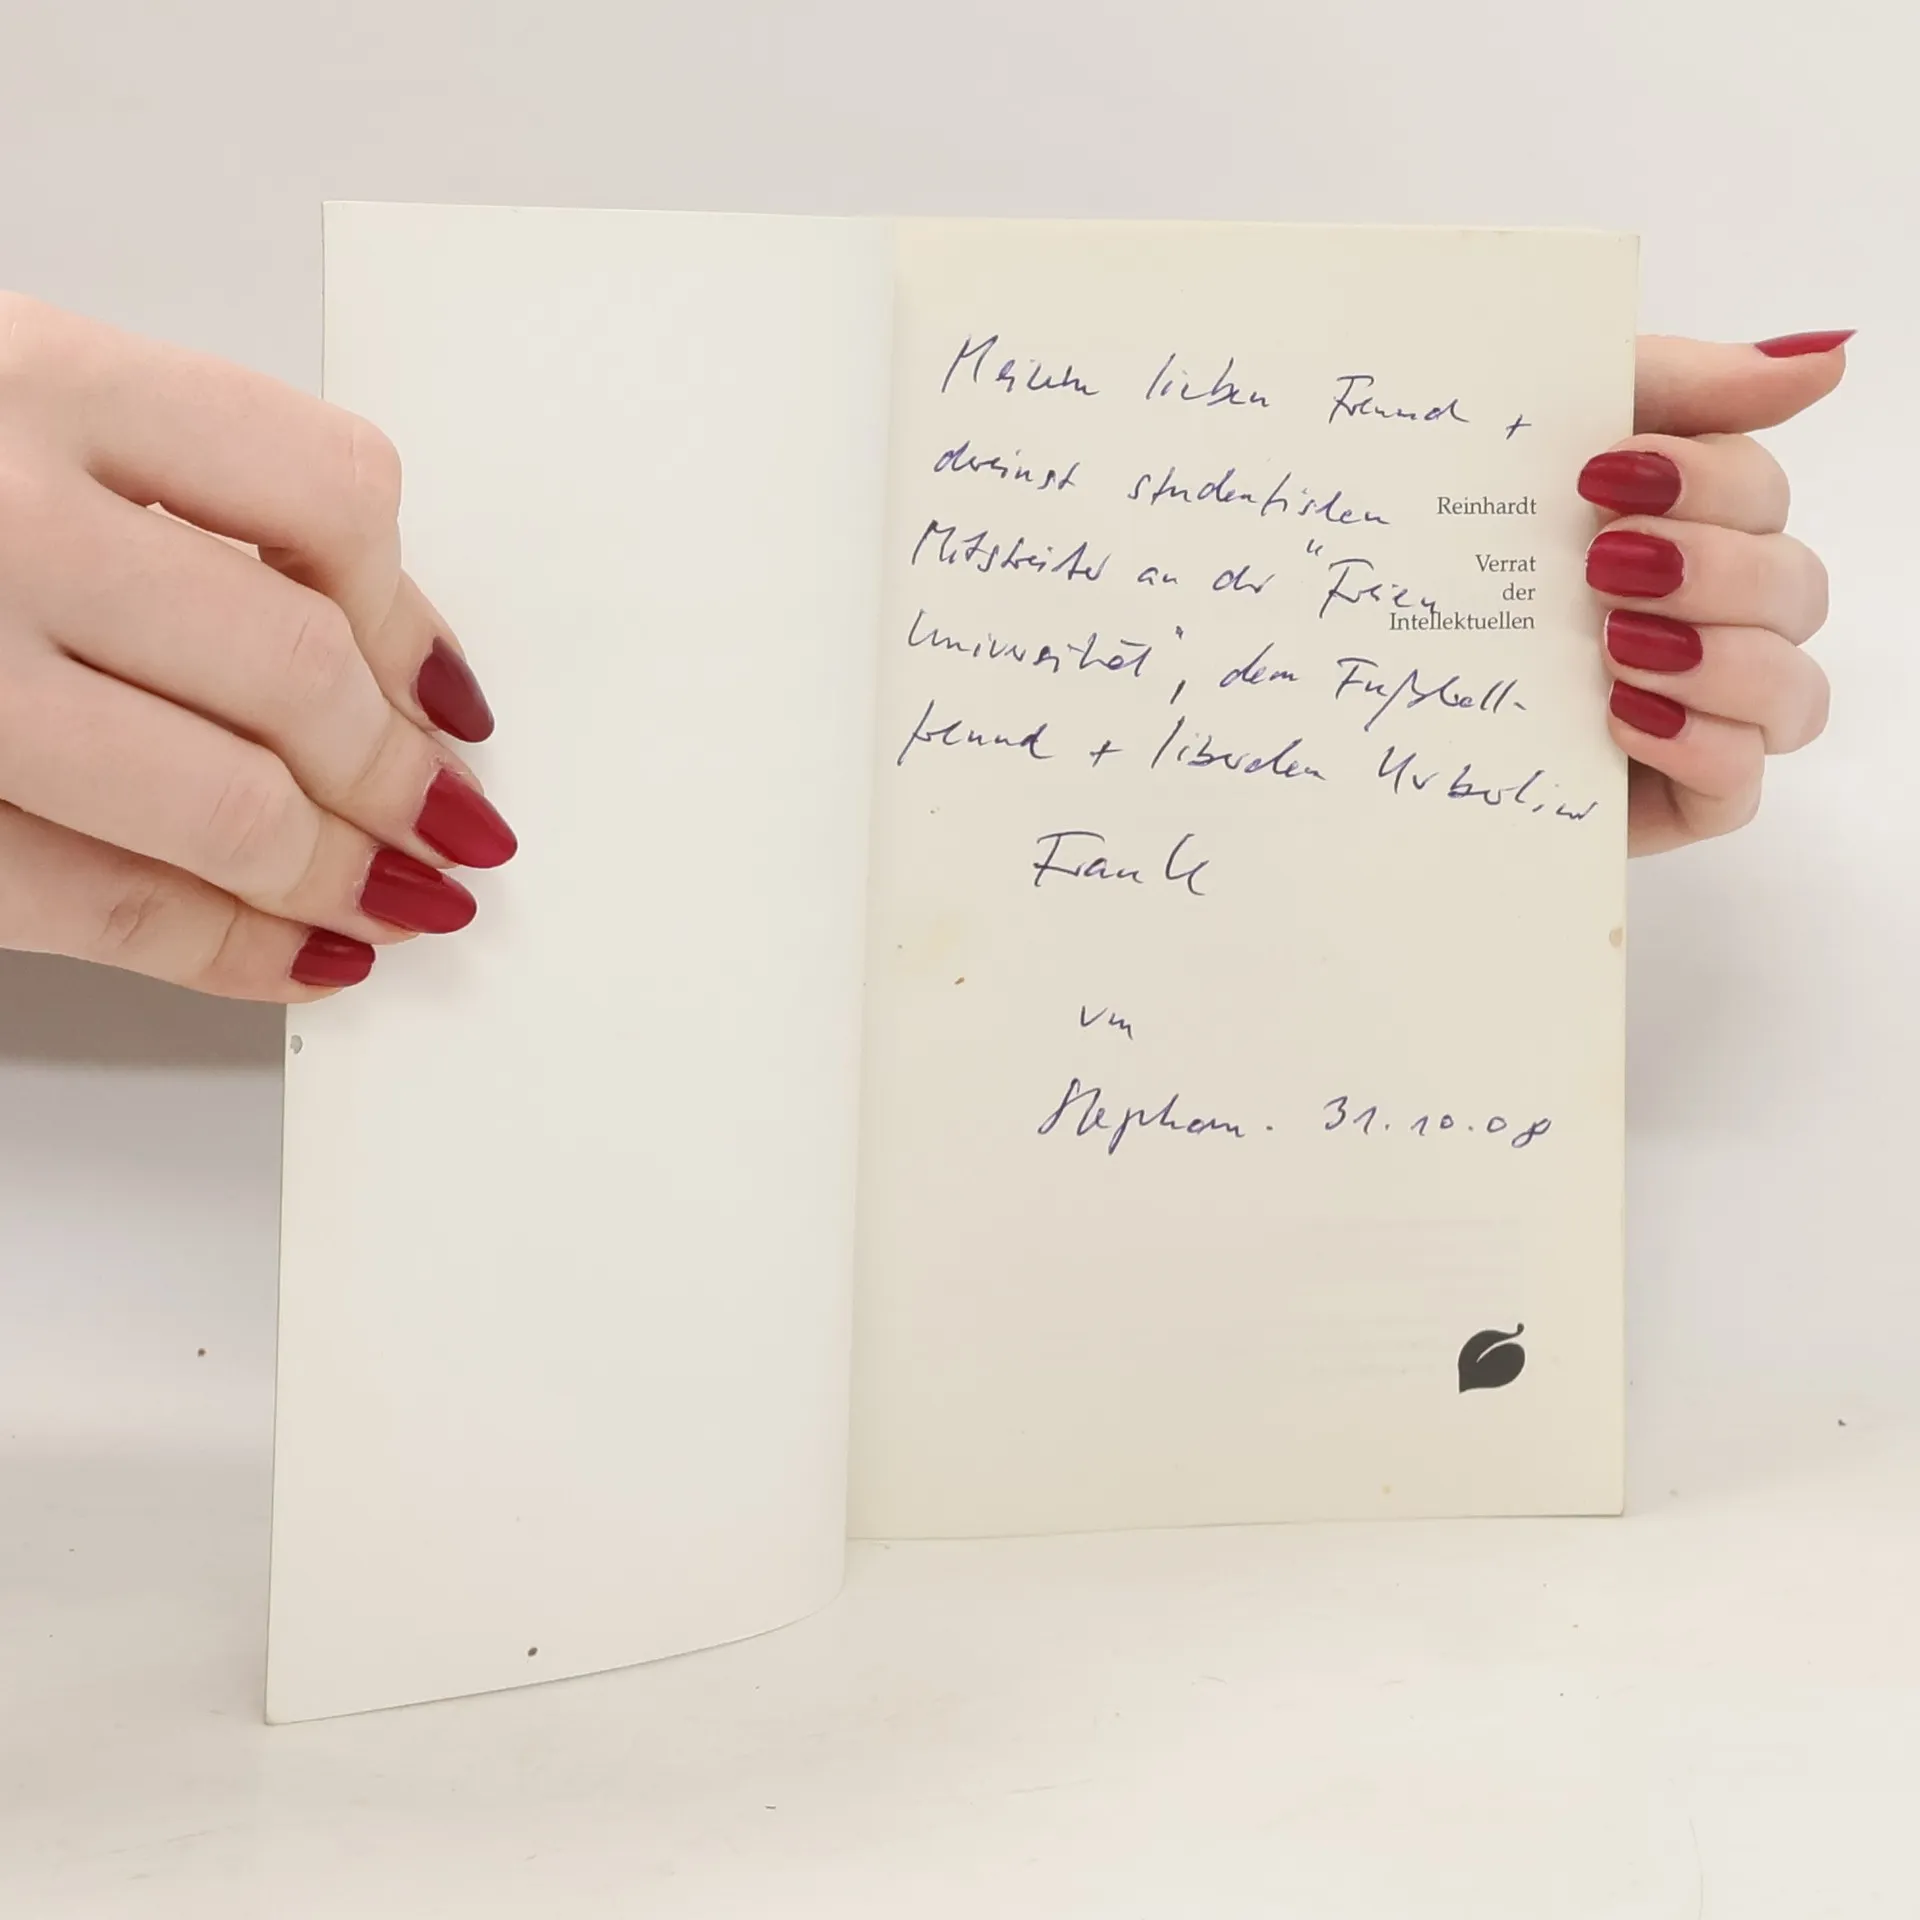 Meinem lieben Freund +
dereinst studentischen
Reinhardt
Mitstreiter an der "Freien
Verrat
der
Intellektuellen
Universität", dem Fußball-
freund + liberalen Urberliner
Frank
von
Stephan. 31.10.08